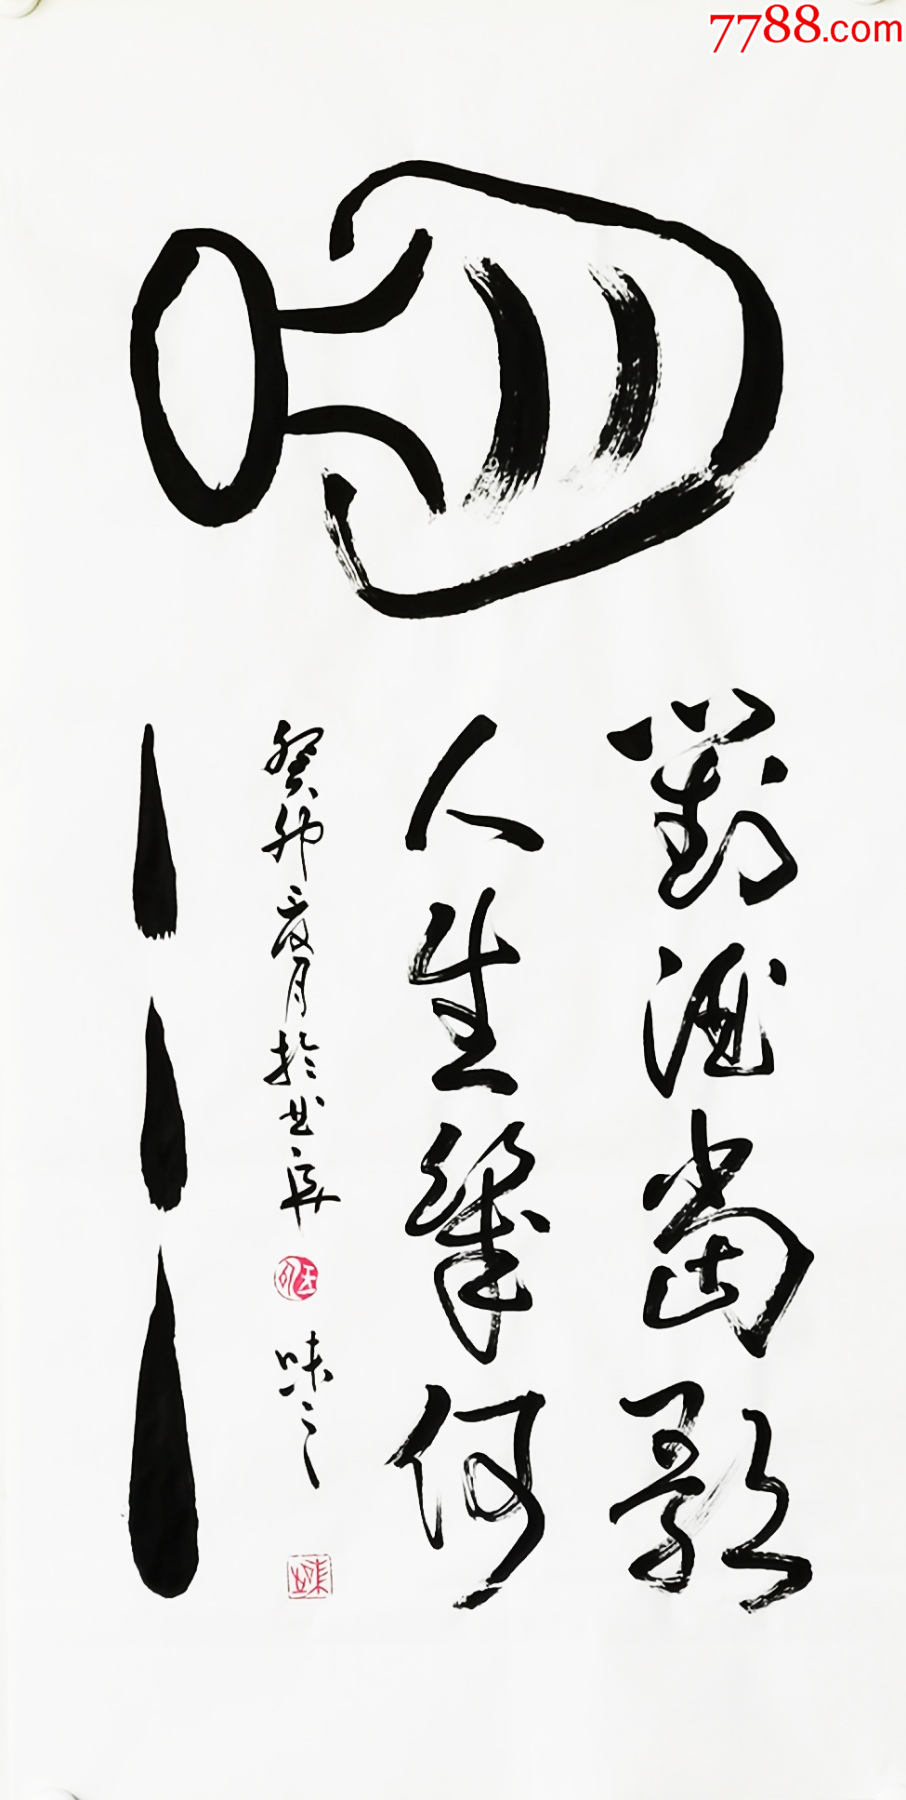 7788.com
對酒當歌
人生幾何
癸卯夏月於
味之